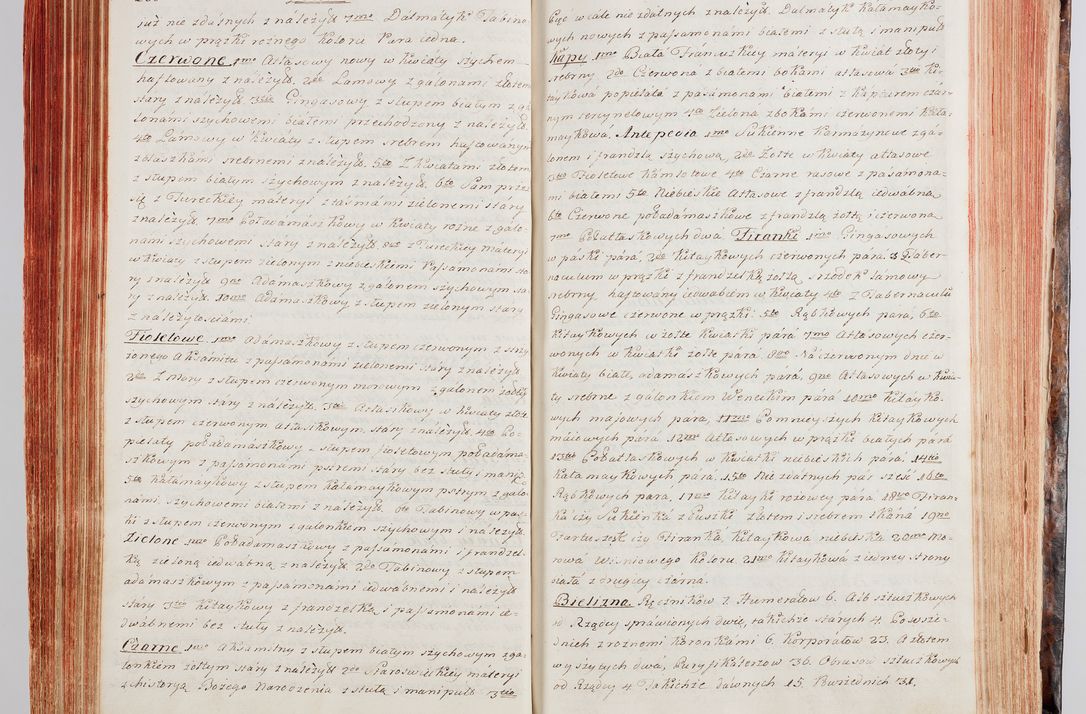 już nie zdatnych z należyts. 7mo Dalmatyk Tabino-
wych w prążki rożnego koloru Para iedna.
Czerwone 1mo Atłasowy nowy w kwiaty szychem
haftowany z należyts. 2do Lamowy z galonami złotem
stary z należyts 3tio Gingasowy z słupem białym z ga-
lonami szychowemi białemi przechodzony z należyts.
4to Lamowy w kwiaty z słupem srebrem haftowanym
z blaszkami srebrnemi z należyts. 5to Z kwiatami złotem
z słupem białym szychowym z należyts. 6to Sam przez
się z Tureckiey materyi z tasmami zielonemi stary
z należyts. 7mo Poładamaszkowy w kwiaty rożne z galo-
nami szychowemi stary z należyts 8vo z Tureckiey materyi
w kwiaty z słupem zielonym z niebieskiemi passamonami sta-
ry z należyts 9no Adamaszkowy z galonem szychowym sta-
ry z należyts. 10mo Adamaszkowy z słupem zielonym stary
z należytościami.
Fioletowe 1mo Adamaszkowy z słupem czerwonym z strzy-
żonego Aksamitu z passamonami zielonemi stary z należyts
2do Z mory z słupem czerwonym morowym z galonem
szychowym stary z należyts. 3tio Atłaskowy w kwiaty złote
z słupem czerwonym atłaskowym, stary z należyts. 4to Po-
pielaty poładamaszkowy z słupem fioletowym poładama-
szkowym z passamonami pstremi stary bez stuły i manip.
5to Kałamaykowy z słupem kałamaykowym pstrym z galo-
nami szychowemi białemi z należyts. 6to Tabinowy w paс-
ki z słupem czerwonym z galonkiem szychowym i należyts.
Zielone 1mo Poładamaszkowy z passamonami i frandzel-
ką zieloną iedwabną z należyts 2do Tabinowy z słupem
adamaszkowym z passamonami iedwabnemi i należyts
stary 3tio kitaykowy z frandzelką i passamonami ie-
dwabnemi bez stuły z należyts.
Czarne 1mo Aksamitny z słupem białym szychowym z ga-
lonkiem żołtym stary z należyts 2do Staroswieckiey materyi
z historyą Bożego Narodzenia z stułą i manipuls 3tio
Być w cale nie zdatnych z należyts. Dalmatyk kałamayko-
wych nowych z passamonami białemi z stułą i manipuls
Kapy 1mo Biała Francuzkiey materyi w kwiat złoty i
srebrny 2do Czerwona z białemi bokami atłasowa 3tio Ki-
taykowa popielata z pasamonami białemi z kapturem czar-
nym tercynelowym 4to Zielona z bokami czerwonemi Kała-
maykowa. Antepedia 1mo Sukienne Karmazynowe z ga-
lonem i frandzlą szychową 2do Żołte w kwiaty atłasowe
3tio Bioletowe kamlotowe 4to Czarne rasowe z pasamona-
mi białemi 5to Niebieskie Atłasowe z frandzlą iedwabną
6to Czerwone poładamaszkowe z frandzlą żołtą i czerwoną
7mo Połatłaskowych dwa Firanki 1mo Gingasowych
w paski para, 2do kitaykowych czerwonych para 3 Taber-
naculum w prążki z frandzelką żołtą szrodek lamowy
srebrny haftowany iedwabiem w kwiaty 4to Z Tabernaculu
Gingasowe czerwone w prążki. 5to Rąbkowych para, 6to
kitaykowych w żołte kwiatki para 7mo Atłasowych czer-
wonych w kwiatki żołte para. 8vo Na czerwonym dnie w
kwiaty białe, adamaszkowych para, 9no Atłasowych w kwia-
ty srebrne z galonkiem Wenckim para 10mo kitayko-
wych majowych para, 11mo Pomnieyszych kitaykowych
maiowych para 12mo Atłasowych w prążki białych para
13tio Połatłaskowych w kwiatki niebieskich para: 14to
Kałamaykowych para, 15to Nie zdatnych par sześć 16to
Rąbkowych para, 17mo kitayki rożowey para 18vo Firan-
ka czy Sukienka z Puszki złotem i srebrem tkana 19no
Fartuszek czy Firanka kitaykowa niebieska 20mo Mo-
rowa wisniowego koloru 21mo Kitaykowa z iedney strony
biała z drugiey czarna.
Bielizna Ręczników 7. Humerałow 6. Alb sztuczkowych
od Rządcy sprawionych dwie, takichże starych 4 Powsze-
dnich z rożnemi koronkami 6. Korporałow 23. A złotem
wyszytych dwa, Puryfikaterzow 36. Obrusow sztuczkowych
od Rządcy 4 Takichże dawnych 15. Powszednich 31.